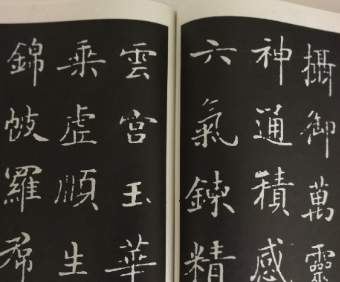 攝御萬靈
神通積感
六氣鍊精
雲宮玉華
乗虛順生
錦帔羅帬